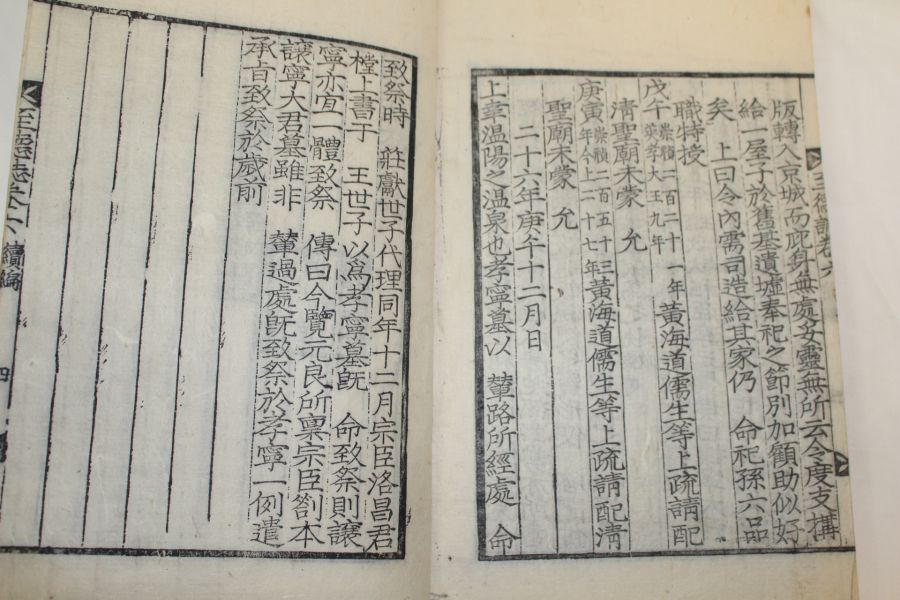 版轉入京城而庇身無處安靈無所云令度支搆
給一屋子於舊基遺墟奉祀之節別加顧助似好
矣 上曰令內需司造給其家仍 命祀孫六品
職特授
戊午崇禎二百二十一年英孝大王九年黃海道儒生等上疏請配
清聖廟未蒙 允
庚寅崇禎二百五十三年今上二十七年黃海道儒生等上疏請配淸
聖廟未蒙 允
二十六年庚午十二月日
上幸溫陽之溫泉也孝寧墓以 輦路所經處 命
致祭時 莊獻世子代理同年十二月宗臣洛昌君
樘上書于 王世子以爲孝寧墓旣 命致祭則讓
寧亦宜一體致祭 傳曰今覽元良所稟宗臣劄本
讓寧大君墓雖非 輦過處旣致祭於孝寧一例遣
承旨致祭於歲前
續編
四